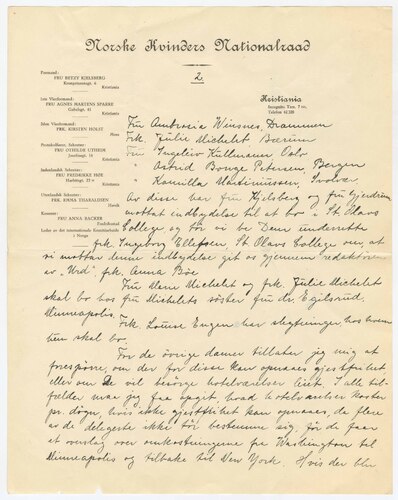 Norske Kvinders Nationalraad
2.
Formand:
FRU BETZY KJELSBERG
Kristiania
1ste Viceformand:
FRU AGNES MARTENS SPARRE
Gabelsgt. 41
Kristiania
2den Viceformand:
FRK. KIRSTEN HOLST
Protokollfører, Sekretær:
FRU OTHILDE UTHEIM
Kristiania
Kassererske, Sekretær:
FRU FREDRIKKE HØE
Kristiania
Utenlandsk Sekretær:
FRK. EMMA THARALDSEN
Kristiania
Kasserer:
FRU ANNA BACKER
Leder av det internationale Kvindeforbund
i Norge
Kristiania
Fru Ambrosia Winsnes, Drammen
Frk. Julie Michelet Bærum
Fru Ingeleiv Kullmann Oslo
" Astrid Bonge Petersen, Bergen
" Kamilla Svolvær
Av disse har fru Kjelsberg og fru Gjerdrum
mottat indbydelse til at bo i St. Olavs
College og tør vi be Dem underrette
frk. Ingeborg Ellefsen, St. Olavs College om, at
vi mottar denne indbydelse git os gjennem redaktøren
av "Urd" frk. Anna Bøe
Fru Marie Michelet og frk. Julie Michelet
skal bo hos fru Michelets søster fru dr. Egilsrud,
Minneapolis.
Frk. Louise Engen har slegtninger, hos hvem
hun skal bo.
For de øvrige damer tillater jeg mig at
forespørre, om der for disse kan opnaaes gjestfrihet
eller om De vil besørge hotelværelser leiet. I alle til-
fælder maa jeg faa opgit, hvad hotelværelser koster
pr. døgn, hvis ikke gjestfrihet kan opnaaes, da flere
av de delegerte ikke tør bestemme sig, før de faar
et overslag over omkostningerne fra Washington til
Minneapolis og tilbake til New York. Hvis der blir